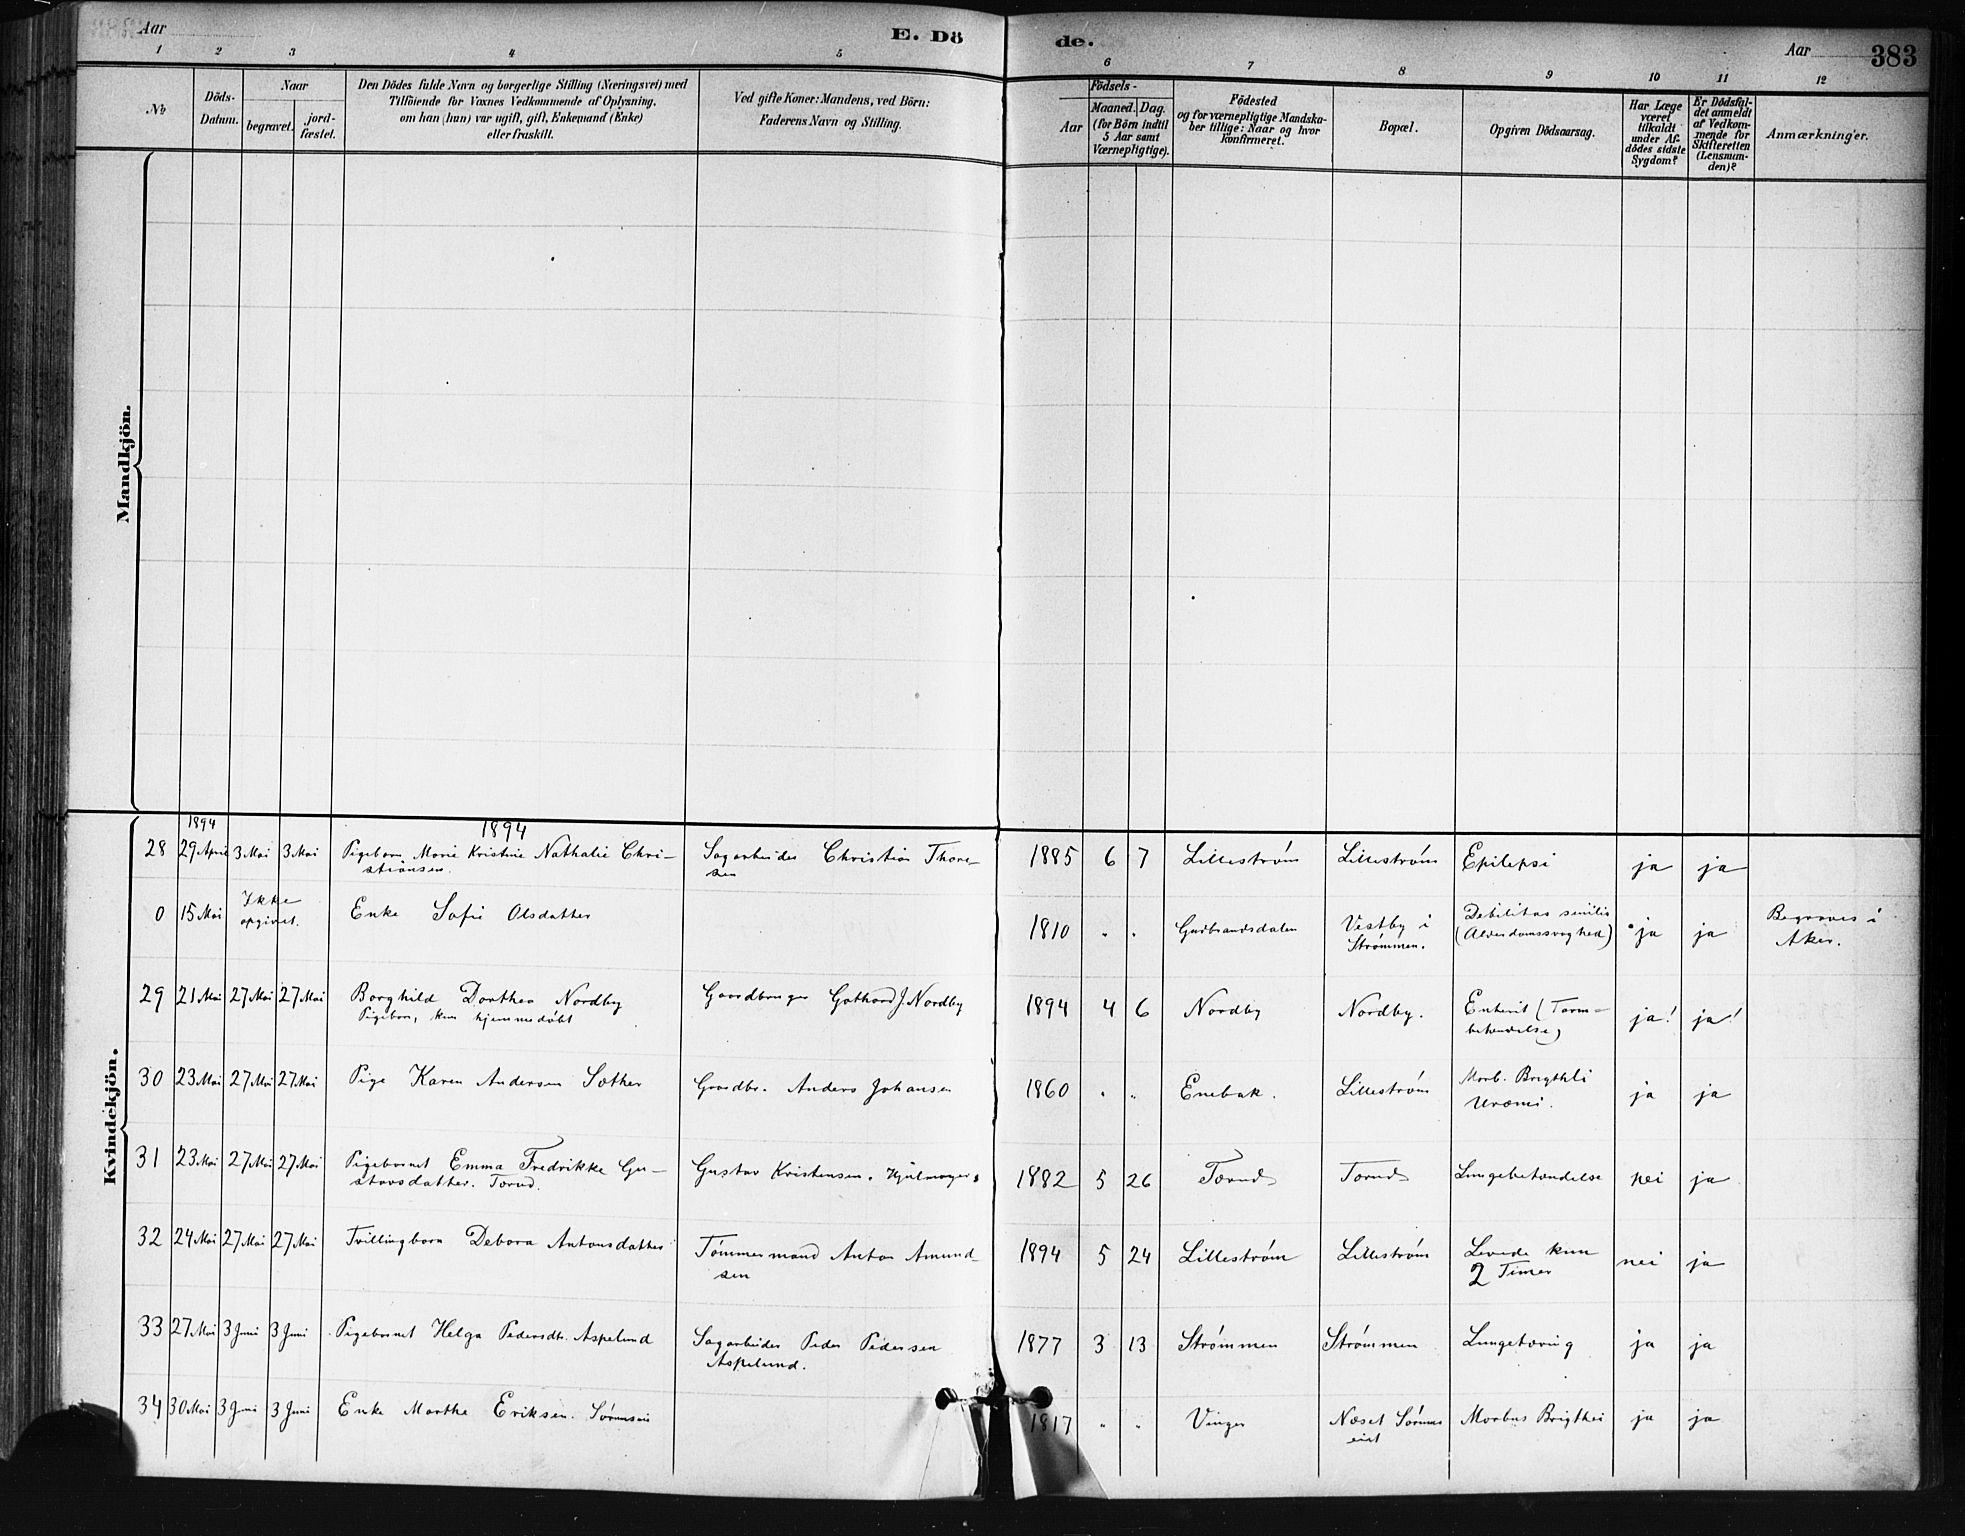 Aar
E. Dö
de.
Aar
383
1 2 3 4 5 6 7 8 9 10 11 12
No
Döds-
Datum.
Naar
begravet.
jord-
fæstet.
Den Dödes fulde Navn og borgerlige Stilling (Næringsvei) med
Tilföiende for Voxnes Vedkommende af Oplysning,
om han (hun) var ugift, gift, Enkemand (Enke)
eller fraskilt.
Ved gifte Koner: Mandens, ved Börn:
Faderens Navn og Stilling.
Födsels-
Aar
Maaned. Dag.
(for Börn indtil
5 Aar samt
Værnepligtige).
Födested
og for værnepligtige Mandska-
ber tillige: Naar og hvor
konfirmeret.
Bopæl.
Opgiven Dödsaarsag.
Har Læge
været
tilkaldt
under Af-
dödes sidste
Sygdom?
Er Dödsfal-
det anmeldt
af Vedkom-
mende for
Skifteretten
(Lensman-
den)?
Anmærkninger.
Mandkjön.
Kvindekjön.
1894
1894
28 29 April 3 Mai 3 Mai Pigebarn Marie Kristine Nathalie Chri-
stiansen. Sagarbeider Christian Thore-
sen 1885 6 7 Lillestrøm Lillestrøm Epilepsi ja ja
0 15 Mai Ikke
opgivet. Enke Sofie Olsdatter 1810 " " Gudbrandsdalen Vestby i
Strømmen. Debilitas senilis
(Alderdomssvaghed) ja ja Begraves i
Aker.
29 21 Mai 27 Mai 27 Mai Borghild Dorthea Nordby
Pigebarn, kun hjemmedøbt Gaardbruger Gothard J Nordby 1894 4 6 Nordby Nordby. Enterit (Tarm-
betændelse) ja! ja!
30 23 Mai 27 Mai 27 Mai Pige Karen Andersen Sæther Gaardbr. Anders Johansen 1860 " " Enebak. Lillestrøm Morb. Brigthli
Uræmi. ja ja
31 23 Mai 27 Mai 27 Mai Pigebarnet Emma Fredrikke Gu-
stavsdatter. Torud. Gustav Kristensen. Hjulmager 1882 5 26 Torud Torud Lungebetændelse nei ja
32 24 Mai 27 Mai 27 Mai Tvillingbarn Debora Antonsdatter Tømmermand Anton Amund-
sen 1894 5 24 Lillestrøm Lillestrøm Levede kun
2 Timer nei ja
33 27 Mai 3 Juni 3 Juni Pigebarnet Helga Pedersdtr. Aspelund Sagarbeider Peder Pedersen
Aspelund. 1877 3 13 Strømmen Strømmen Lungetæring ja ja
34 30 Mai 3 Juni 3 Juni Enke Marthe Eriksen. 1817 " " Vinger Næset Morbus Brigthei ja ja